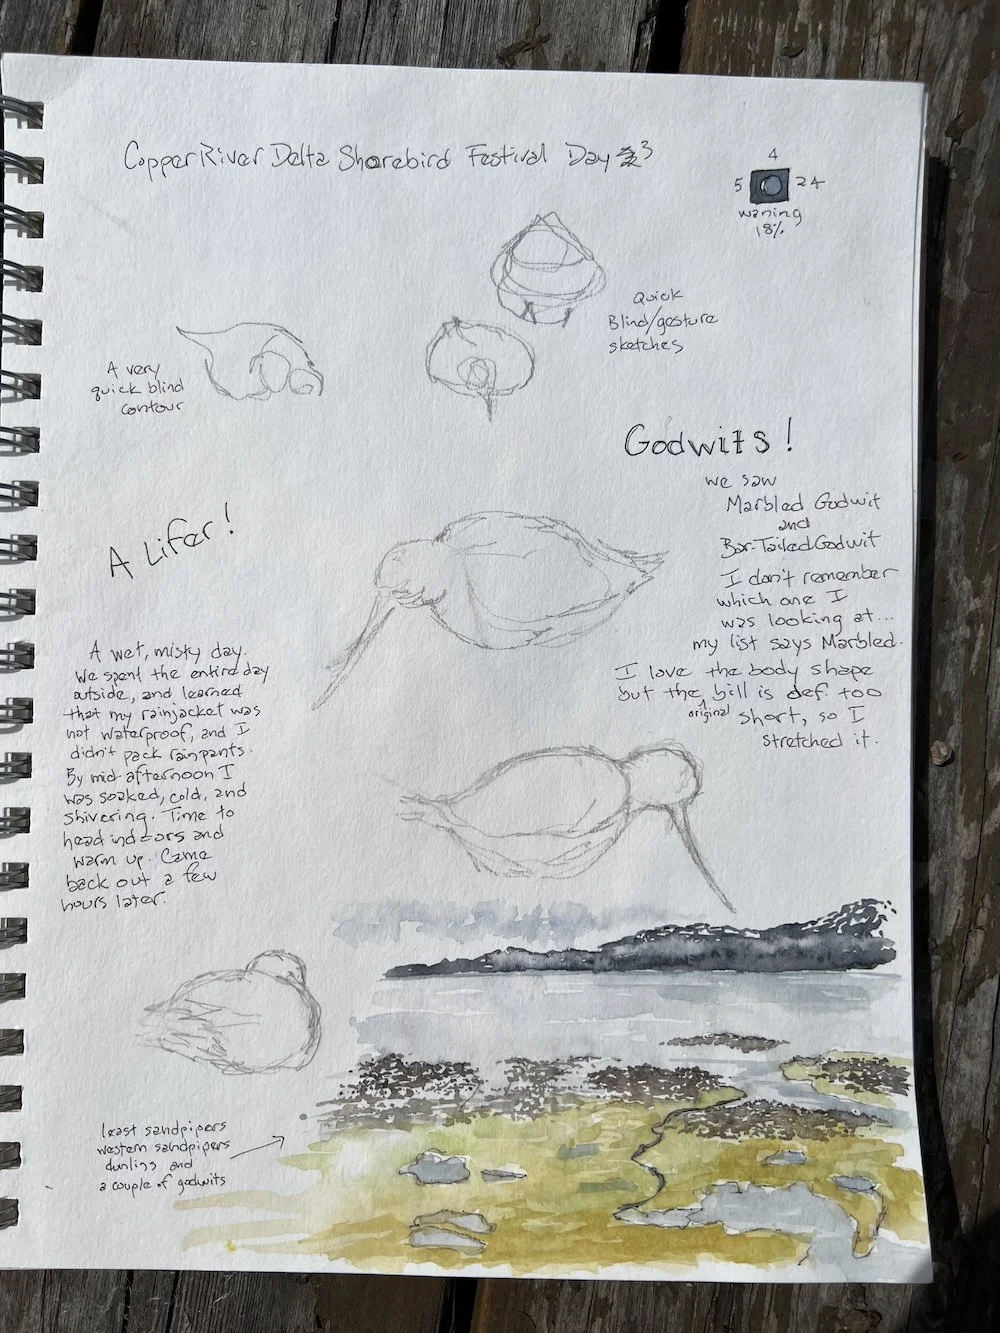 Copper River Delta Shorebird Festival Day 3
4
5 24
waning
18%
Quick
Blind/gesture
sketches
A very
quick blind
contour
Godwits!
we saw
Marbled Godwit
and
Bar-Tailed Godwit
I don't remember
which one I
was looking at...
my list says Marbled.
I love the body shape
but the original bill is def. too
short, so I
stretched it.
A Lifer!
A wet, misty day.
We spent the entire day
outside, and learned
that my rainjacket was
not waterproof, and I
didn't pack rainpants.
By mid-afternoon I
was soaked, cold, and
shivering. Time to
head indoors and
warm up. Came
back out a few
hours later.
least sandpipers
western sandpipers
dunlins and
a couple of godwits